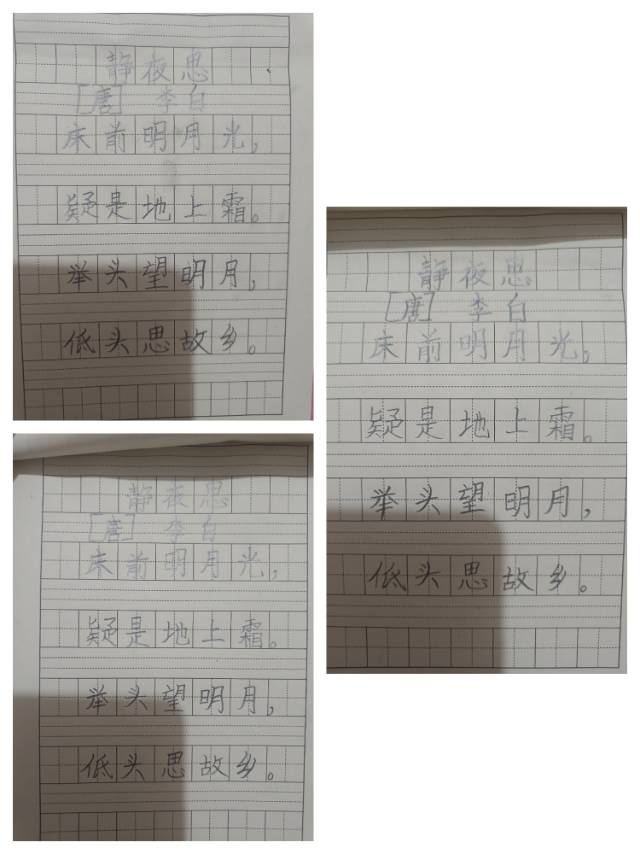 静夜思
[唐] 李白
床前明月光,
疑是地上霜。
举头望明月,
低头思故乡。
静夜思
[唐] 李白
床前明月光,
疑是地上霜。
举头望明月,
低头思故乡。
静夜思
[唐] 李白
床前明月光,
疑是地上霜。
举头望明月,
低头思故乡。